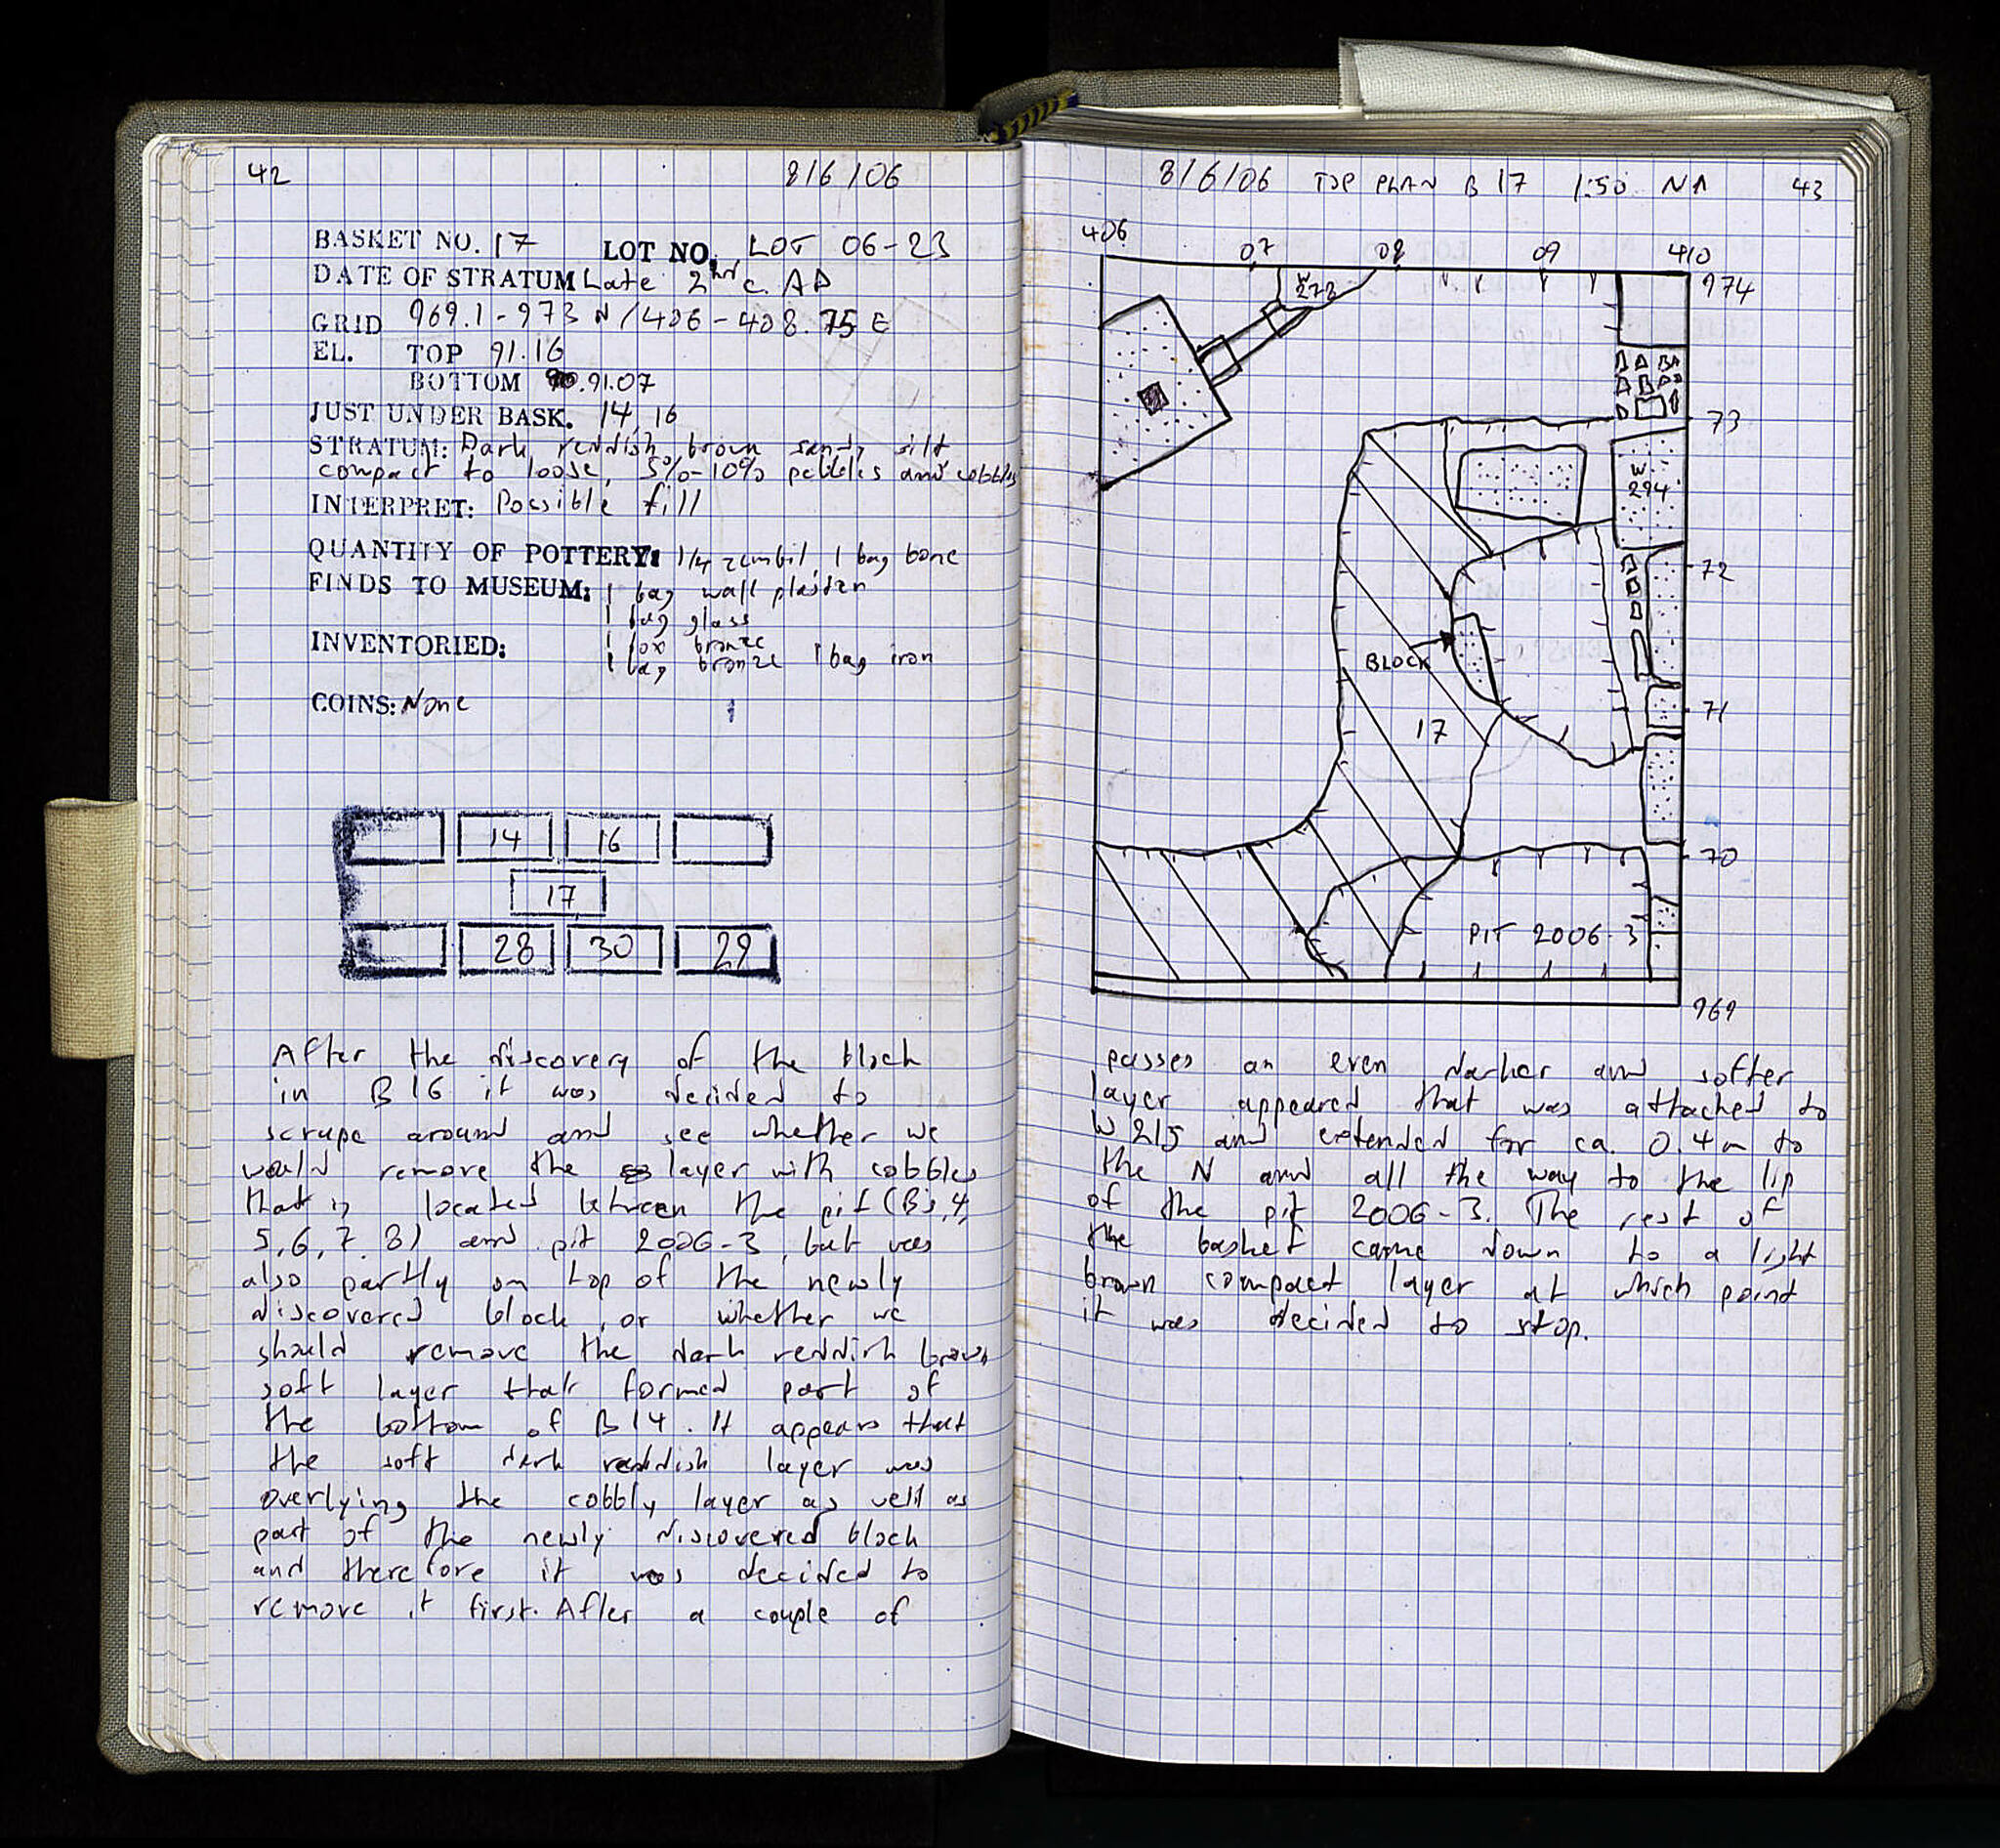 42
8/6/06
BASKET NO. 17 LOT NO. LOT 06-23
DATE OF STRATUM Late 2nd c. AD
GRID 969.1-973 N/406-408.75 E
EL. TOP 91.16
BOTTOM 91.07
JUST UNDER BASK. 14, 16
STRATUM: Dark reddish brown sandy silt
compact to loose, 5%-10% pebbles and cobbles
INTERPRET: Possible fill
QUANTITY OF POTTERY: 1/4 zembil, 1 bag bone
FINDS TO MUSEUM: 1 bag wall plaster
1 bag glass
INVENTORIED: 1 box bronze
1 bag bronze 1 bag iron
COINS: None
14 16
17
28 30 29
After the discovery of the block
in B16 it was decided to
scrape around and see whether we
would remove the layer with cobbles
that is located between the pit (B3,4,
5,6,7,8) and pit 2006-3, but was
also partly on top of the newly
discovered block, or whether we
should remove the dark reddish brown
soft layer that formed part of
the bottom of B14. It appears that
the soft dark reddish layer was
overlying the cobbly layer as well as
part of the newly discovered block
and therefore it was decided to
remove it first. After a couple of
8/6/06 TOP PLAN B 17 1:50 NA 43
406 07 08 09 410
974
W
273
73
W
294
72
BLOCK
71
17
70
PIT 2006-3
969
passes an even darker and softer
layer appeared that was attached to
W 215 and extended for ca. 0.4m to
the N and all the way to the lip
of the pit 2006-3. The rest of
the basket came down to a light
brown compact layer at which point
it was decided to stop.